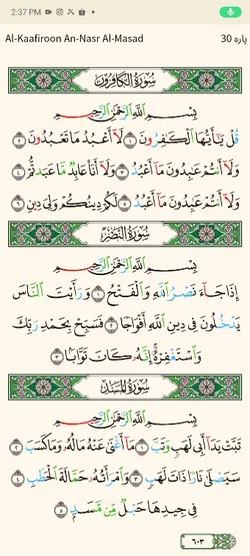 2:37 PM
Al-Kaafiroon An-Nasr Al-Masad پاره 30
سُورَةُ الكَافِرُونَ
بِسْمِ اللَّهِ الرَّحْمَٰنِ الرَّحِيمِ
قُلْ يَا أَيُّهَا الْكَافِرُونَ ١ لَا أَعْبُدُ مَا تَعْبُدُونَ ٢
وَلَا أَنتُمْ عَابِدُونَ مَا أَعْبُدُ ٣ وَلَا أَنَا عَابِدٌ مَّا عَبَدتُّمْ ٤
وَلَا أَنتُمْ عَابِدُونَ مَا أَعْبُدُ ٥ لَكُمْ دِينُكُمْ وَلِيَ دِينِ ٦
سُورَةُ النَّصْرِ
بِسْمِ اللَّهِ الرَّحْمَٰنِ الرَّحِيمِ
إِذَا جَاءَ نَصْرُ اللَّهِ وَالْفَتْحُ ١ وَرَأَيْتَ النَّاسَ
يَدْخُلُونَ فِي دِينِ اللَّهِ أَفْوَاجًا ٢ فَسَبِّحْ بِحَمْدِ رَبِّكَ
وَاسْتَغْفِرْهُ إِنَّهُ كَانَ تَوَّابًا ٣
سُورَةُ المَسَدِ
بِسْمِ اللَّهِ الرَّحْمَٰنِ الرَّحِيمِ
تَبَّتْ يَدَا أَبِي لَهَبٍ وَتَبَّ ١ مَا أَغْنَىٰ عَنْهُ مَالُهُ وَمَا كَسَبَ ٢
سَيَصْلَىٰ نَارًا ذَاتَ لَهَبٍ ٣ وَامْرَأَتُهُ حَمَّالَةَ الْحَطَبِ ٤
فِي جِيدِهَا حَبْلٌ مِّن مَّسَدٍ ٥
٦٠٣